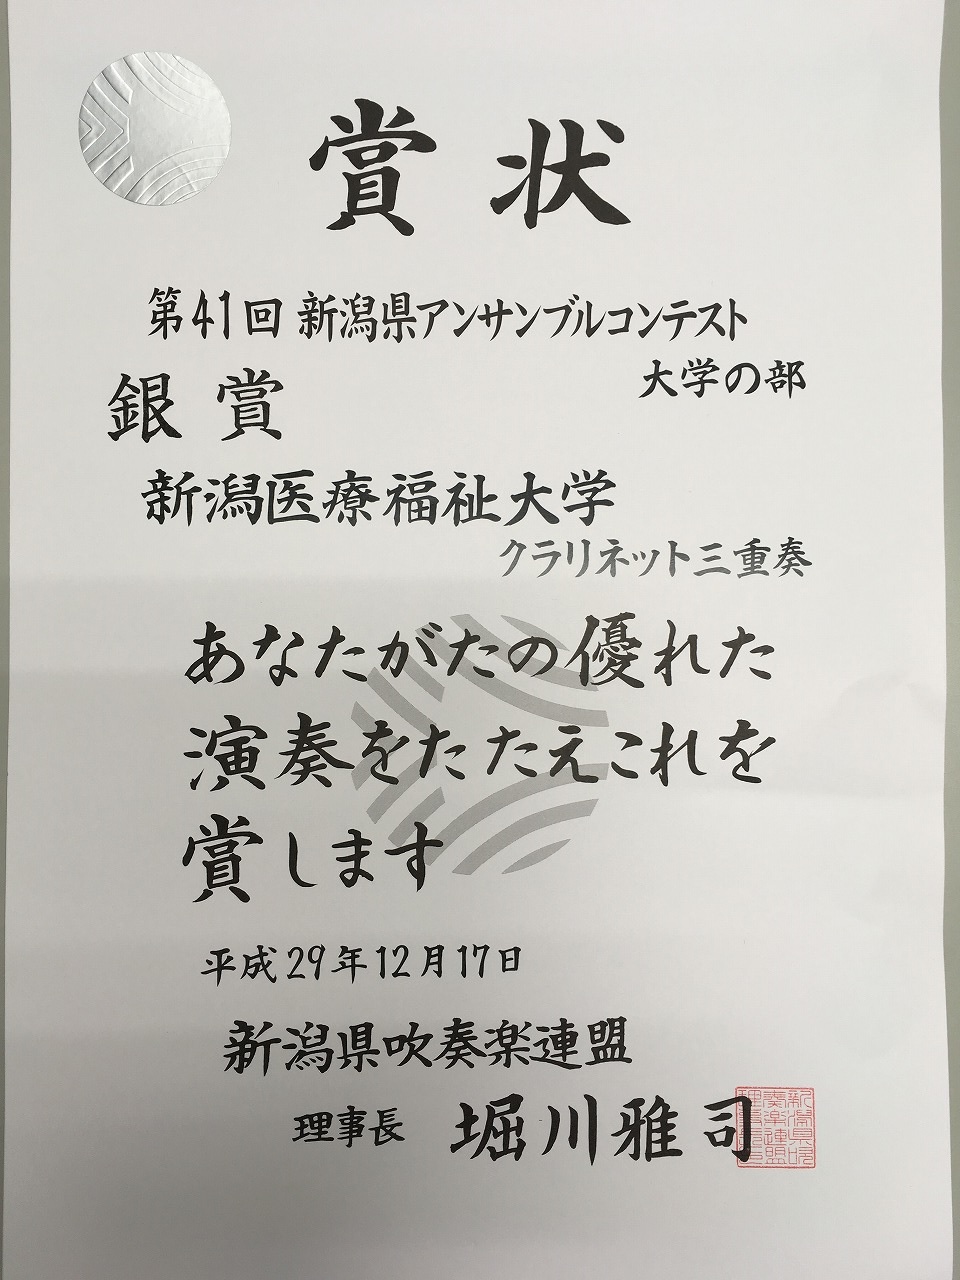 賞状
第41回 新潟県アンサンブルコンテスト
大学の部
銀賞
新潟医療福祉大学
クラリネット三重奏
あなたがたの優れた
演奏をたたえこれを
賞します
平成29年12月17日
新潟県吹奏楽連盟
理事長 堀川雅司